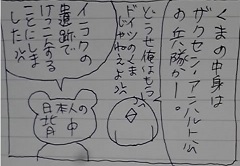 くまの中身は
ザクセン=アンハルト公
の兵隊か!。
どうせ俺はもう
ドイツのくま
じゃねえよ
イラクの
遺跡で
けっこんする
ことにしま
した
日本人の
背中